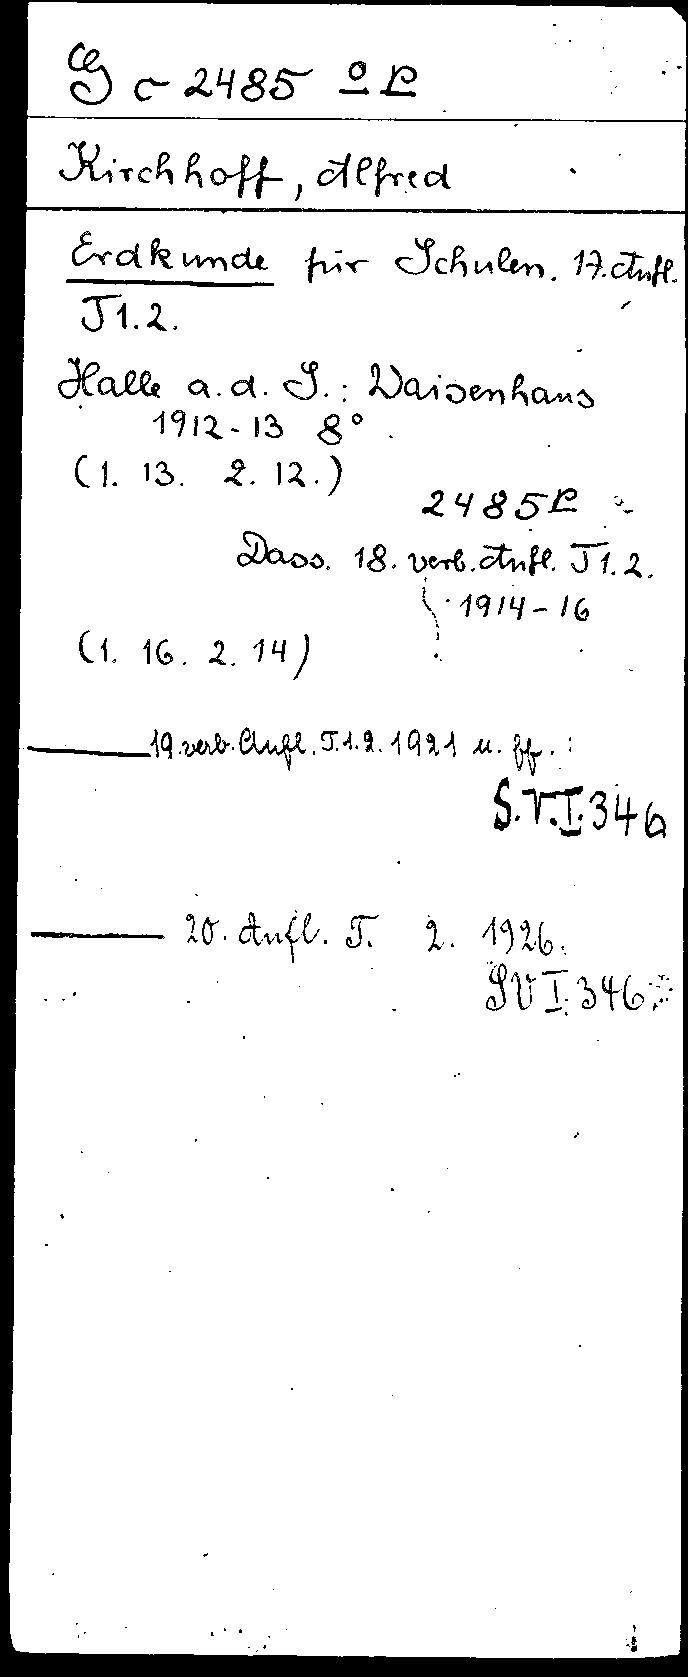 G c 2485 o p
Kirchhoff, Alfred
Erdkunde für Schulen. 17. Aufl.
T 1.2.
Halle a. d. S.: Waisenhaus
1912-13 8°
(1. 13. 2. 12.)
2485 p
Dass. 18. verb. Aufl. T 1.2.
1914-16
(1. 16. 2. 14)
—— 19. verb. Aufl. T. 1. 2. 1921 u. ff. :
S.V.I.346
—— 20. Aufl. T. 2. 1926.
SV I. 346